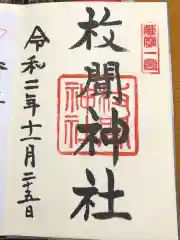 薩摩一宮
枚聞神社
令和二年十一月二十五日